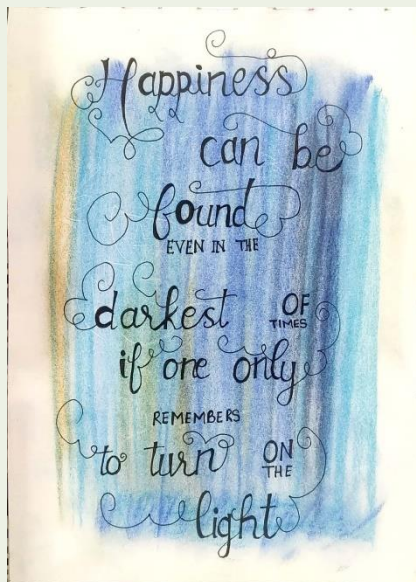 Happiness
can be
found
EVEN IN THE
darkest OF
TIMES
if one only
REMEMBERS
to turn ON
THE
light